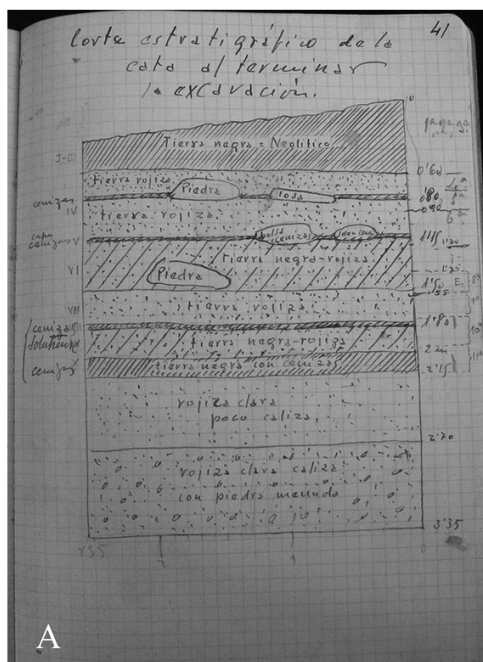 41
Corte estratigráfico de la
cata al terminar
la excavación.
0
Tierra negra = Neolítico
I-III
0'60
tierra rojiza
Piedra
losa
0'80
cenizas
IV
0'90
tierra rojiza
6ª
capa
cenizas V
bolsa
cenizas
1'15
1'20
tierra negra-rojiza
VI
Piedra
1'50
E
1'55
VII
tierra rojiza
1'80
cenizas
solutrense
tierra negra-rojiza
2 m
tierra negra con cenizas
cenizas
2'15
rojiza clara
poco caliza
2'70
rojiza clara caliza
con piedra menuda
3'35
2
1
0
A